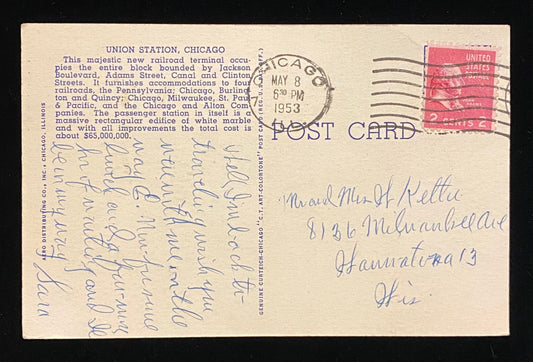 UNION STATION, CHICAGO
This majestic new railroad terminal occu-
pies the entire block bounded by Jackson
Boulevard, Adams Street, Canal and Clinton
Streets. It furnishes accommodations to four
railroads, the Pennsylvania; Chicago, Burling-
ton and Quincy; Chicago, Milwaukee, St. Paul
& Pacific, and the Chicago and Alton Com-
panies. The passenger station in itself is a
massive rectangular edifice of white marble
and with all improvements the total cost is
about $65,000,000.
CHICAGO
MAY 8
6 30 PM
1953
ILL.
UNITED
STATES
POSTAGE
2 CENTS 2
POST CARD
AERO DISTRIBUTING CO., INC., CHICAGO, ILLINOIS
GENUINE CURTEICH-CHICAGO "C.T. ART-COLORTONE" POST CARD (REG. U.S. PAT. OFF.)
Well I'm back
traveling wish you
were with me on the
way
and
waiting and
be on my way
Sara
Mr and Mrs
8136 Milwaukee Ave
Wauwatosa 13
Wis.